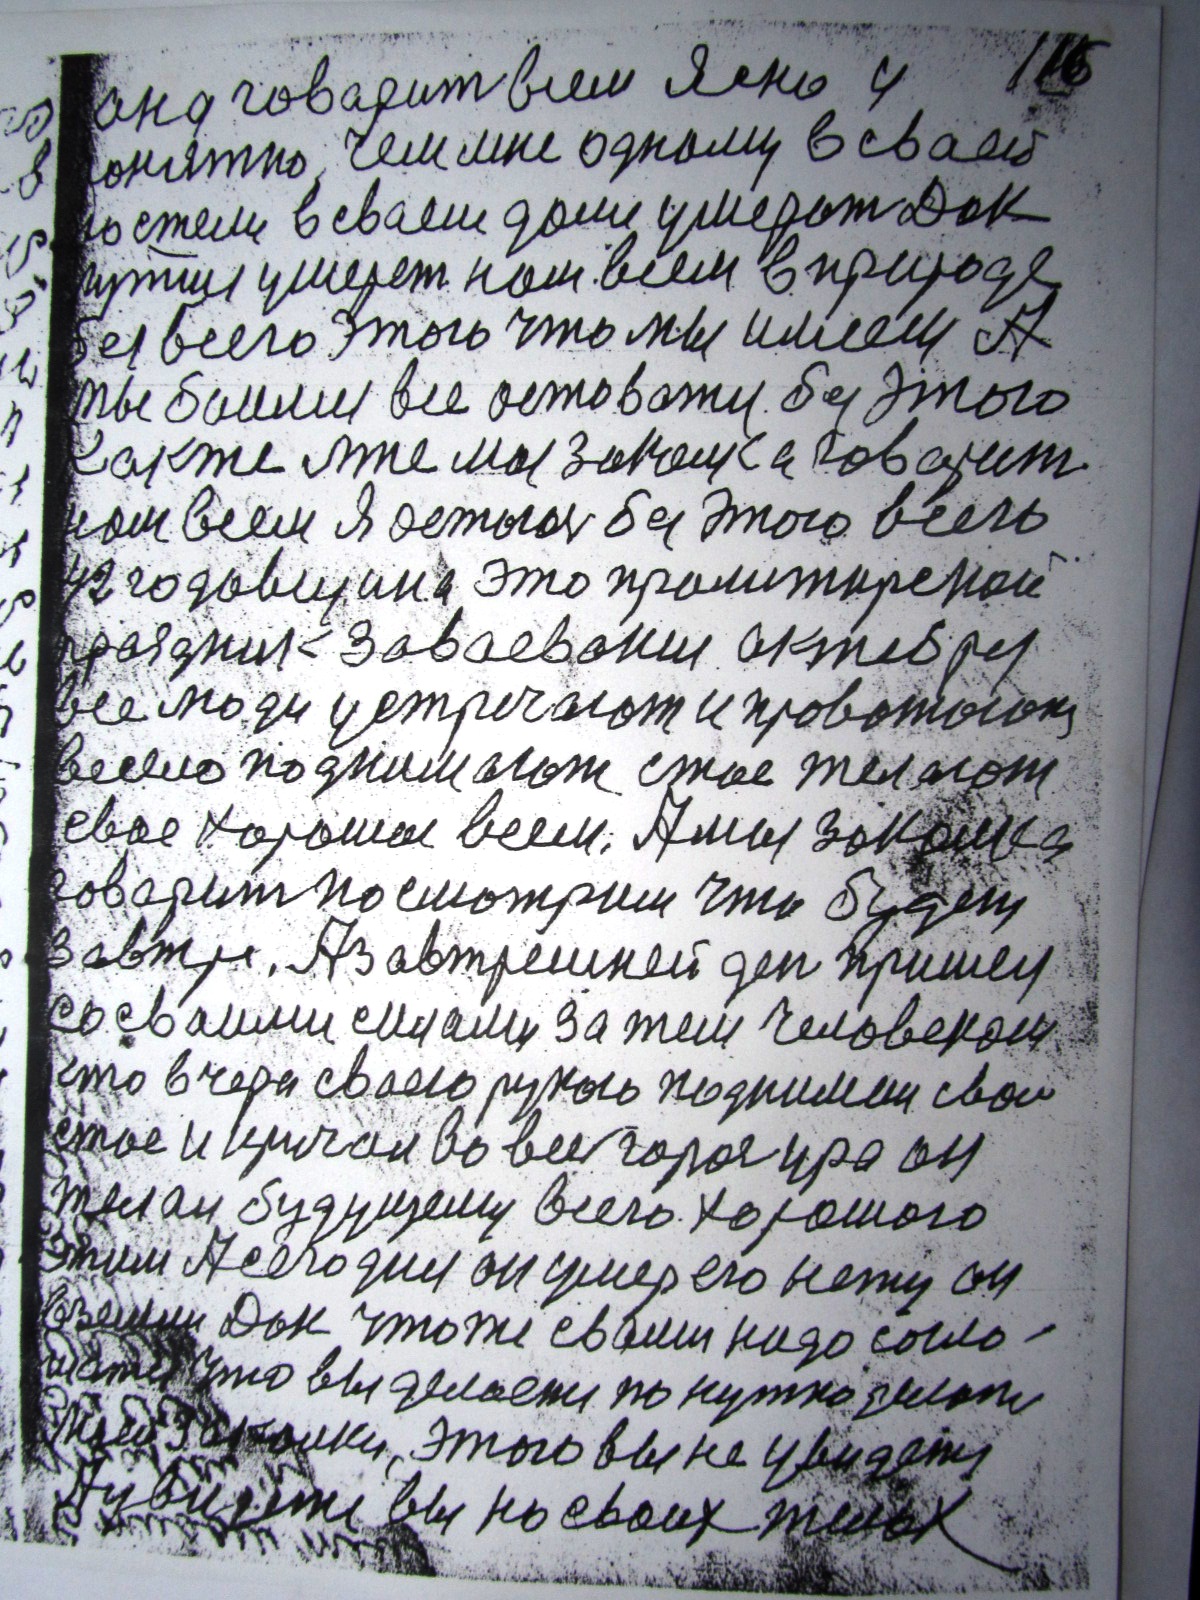 116
она говарит всем ясно и
понятно, чем мне одному в сваей
постели в сваем доме умерат Дак
лутши умерет нам всем в природе
без всего этого что мы имеем А
мы боимся все оставатц без этого
как же же моя закалка говарит
нам всем Я остаюс без этого всего
42 годавщина это пролитарской
праздник завоевании октебря
все люди устричают и провожают
весело поднимают стое желают
свое хорошое всем. А моя закалка
говарит посмотрим что будет
завтре. А завтрешней ден пришел
со сваими силами за тем человеком
кто вчера сваею рукою поднимал свой
стое и кричал во все горое ура он
желал будущему всего хорошого
этим А сегодня он умер его нету он
вземли Дак что же свами надо согло-
шатся что вы делаети по нужно делать
моей закалки, этого вы не увидети
А увидети вы на своих телах